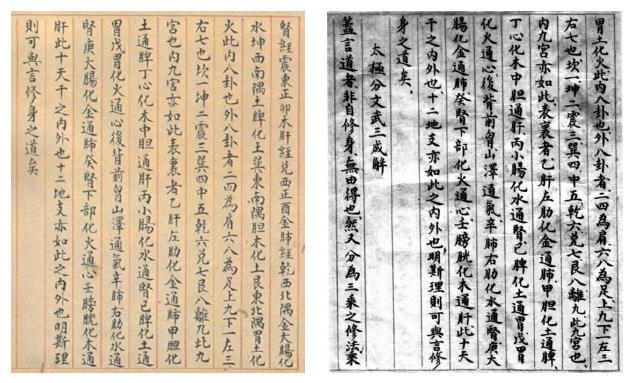 腎經震東正卯木肝經兌西正酉金肺經乾西北隅金大腸化
水坤西南隅土脾化土巽東南隅胆木化土艮東北隅胃土化
火此內八卦也外八卦者二四為肩六八為足上九下一左三
右七也坎一坤二震三巽四中五乾六兌七艮八離九此九
宮也內九宮亦如此表裏者乙肝左肋化金通肺甲胆化
土通脾丁心化木中胆通肝丙小腸化水通腎己脾化土通
胃戊胃化火通心後背前胷山澤通氣辛肺右肋化水通
腎庚大腸化金通肺癸腎下部化火通心壬膀胱化木通
肝此十天干之內外也十二地支亦如此之內外也明斯理
則可與言修身之道矣
胃土化火此內八卦也外八卦者二四為肩六八為足上九下一左三
右七也坎一坤二震三巽四中五乾六兌七艮八離九此九宮也
內九宮亦如此表裏者乙肝左肋化金通肺甲胆化土通脾
丁心化木中胆通肝丙小腸化水通腎己脾化土通胃戊胃
化火通心後背前胷山澤通氣辛肺右肋化水通腎庚大
腸化金通肺癸腎下部化火通心壬膀胱化木通肝此十天
干之內外也十二地支亦如此之內外也明斯理則可與言修
身之道矣
太極分文武三成解
蓋言道者非自修身無由得也然又分為三乘之修法乘